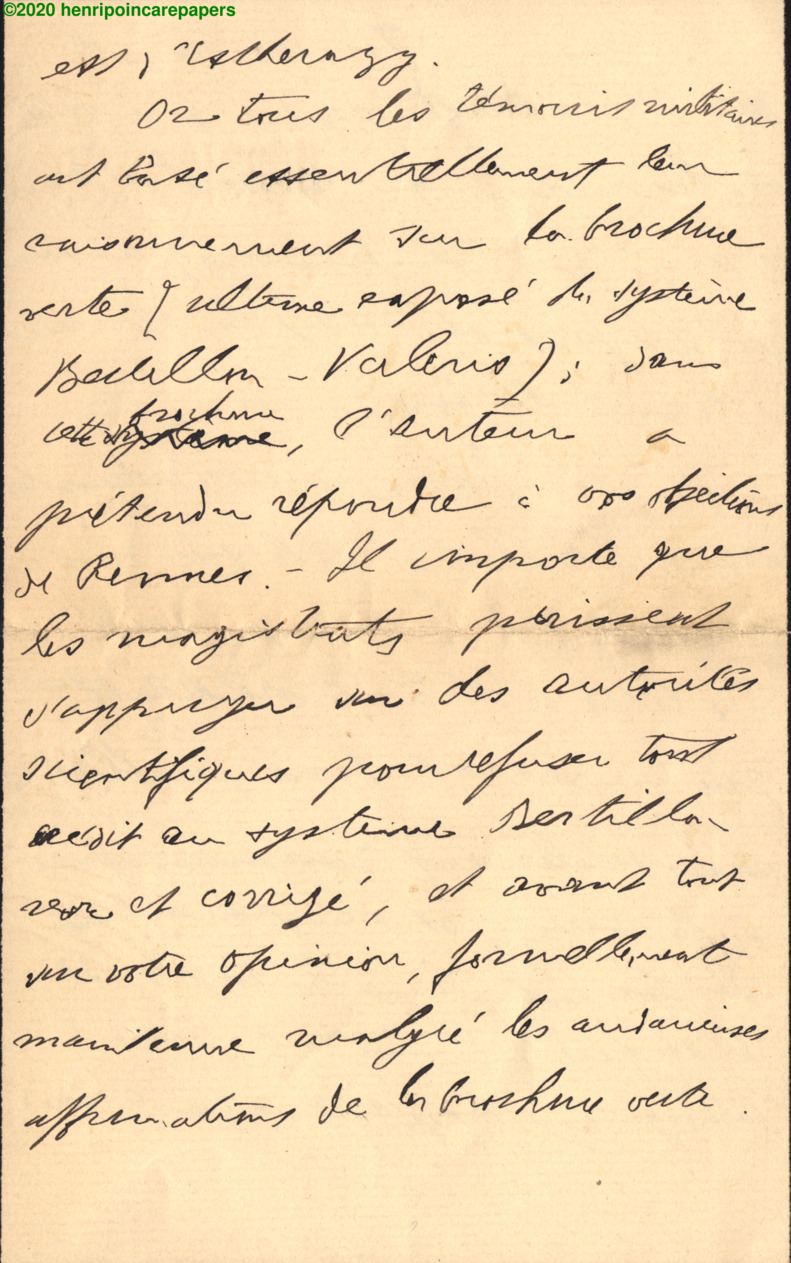 ©2020 henripoincarepapers
est d'Esterhazy.
Or tous les témoins militaires
ont basé essentiellement leur
raisonnement sur la brochure
verte (ultime exposé du système
Bertillon - Valerio); dans
cette brochure système, l'auteur a
prétendu répondre à vos objections
de Rennes. - Il importe que
les magistrats puissent
s'appuyer sur des autorités
scientifiques pour refuser tout
crédit au système Bertillon
revu et corrigé, et avant tout
sur votre opinion, formellement
maintenue malgré les audacieuses
affirmations de la brochure verte.